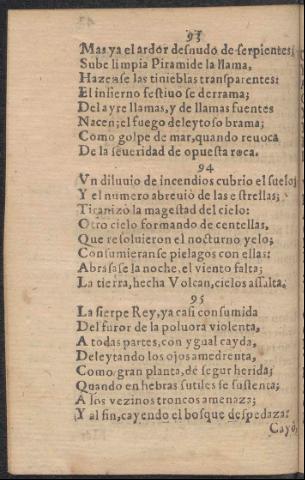 93
Mas ya el ardor desnudo de serpientes,
Sube limpia Piramide la llama,
Hazense las tinieblas transparentes:
El infierno festiuo se derrama;
Del ayre llamas, y de llamas fuentes
Nacen; el fuego deleytoso brama;
Como golpe de mar, quando reuoca
De la seueridad de opuesta roca.
94
Vn diluuio de incendios cubrio el suelo;
Y el numero abreuiò de las estrellas;
Tiranizò la magestad del cielo:
Otro cielo formando de centellas,
Que resoluieron el nocturno yelo;
Consumieranse pielagos con ellas:
Abrasase la noche, el viento falta;
La tierra, hecha Volcan, cielos assalta.
95
La sierpe Rey, ya casi consumida
Del furor de la poluora violenta,
A todas partes, con ygual cayda,
Deleytando los ojos amedrenta,
Como gran planta, de segur herida;
Quando en hebras sutiles se sustenta;
A los vezinos troncos amenaza;
Y al fin, cayendo el bosque despedaza:
Cayò,